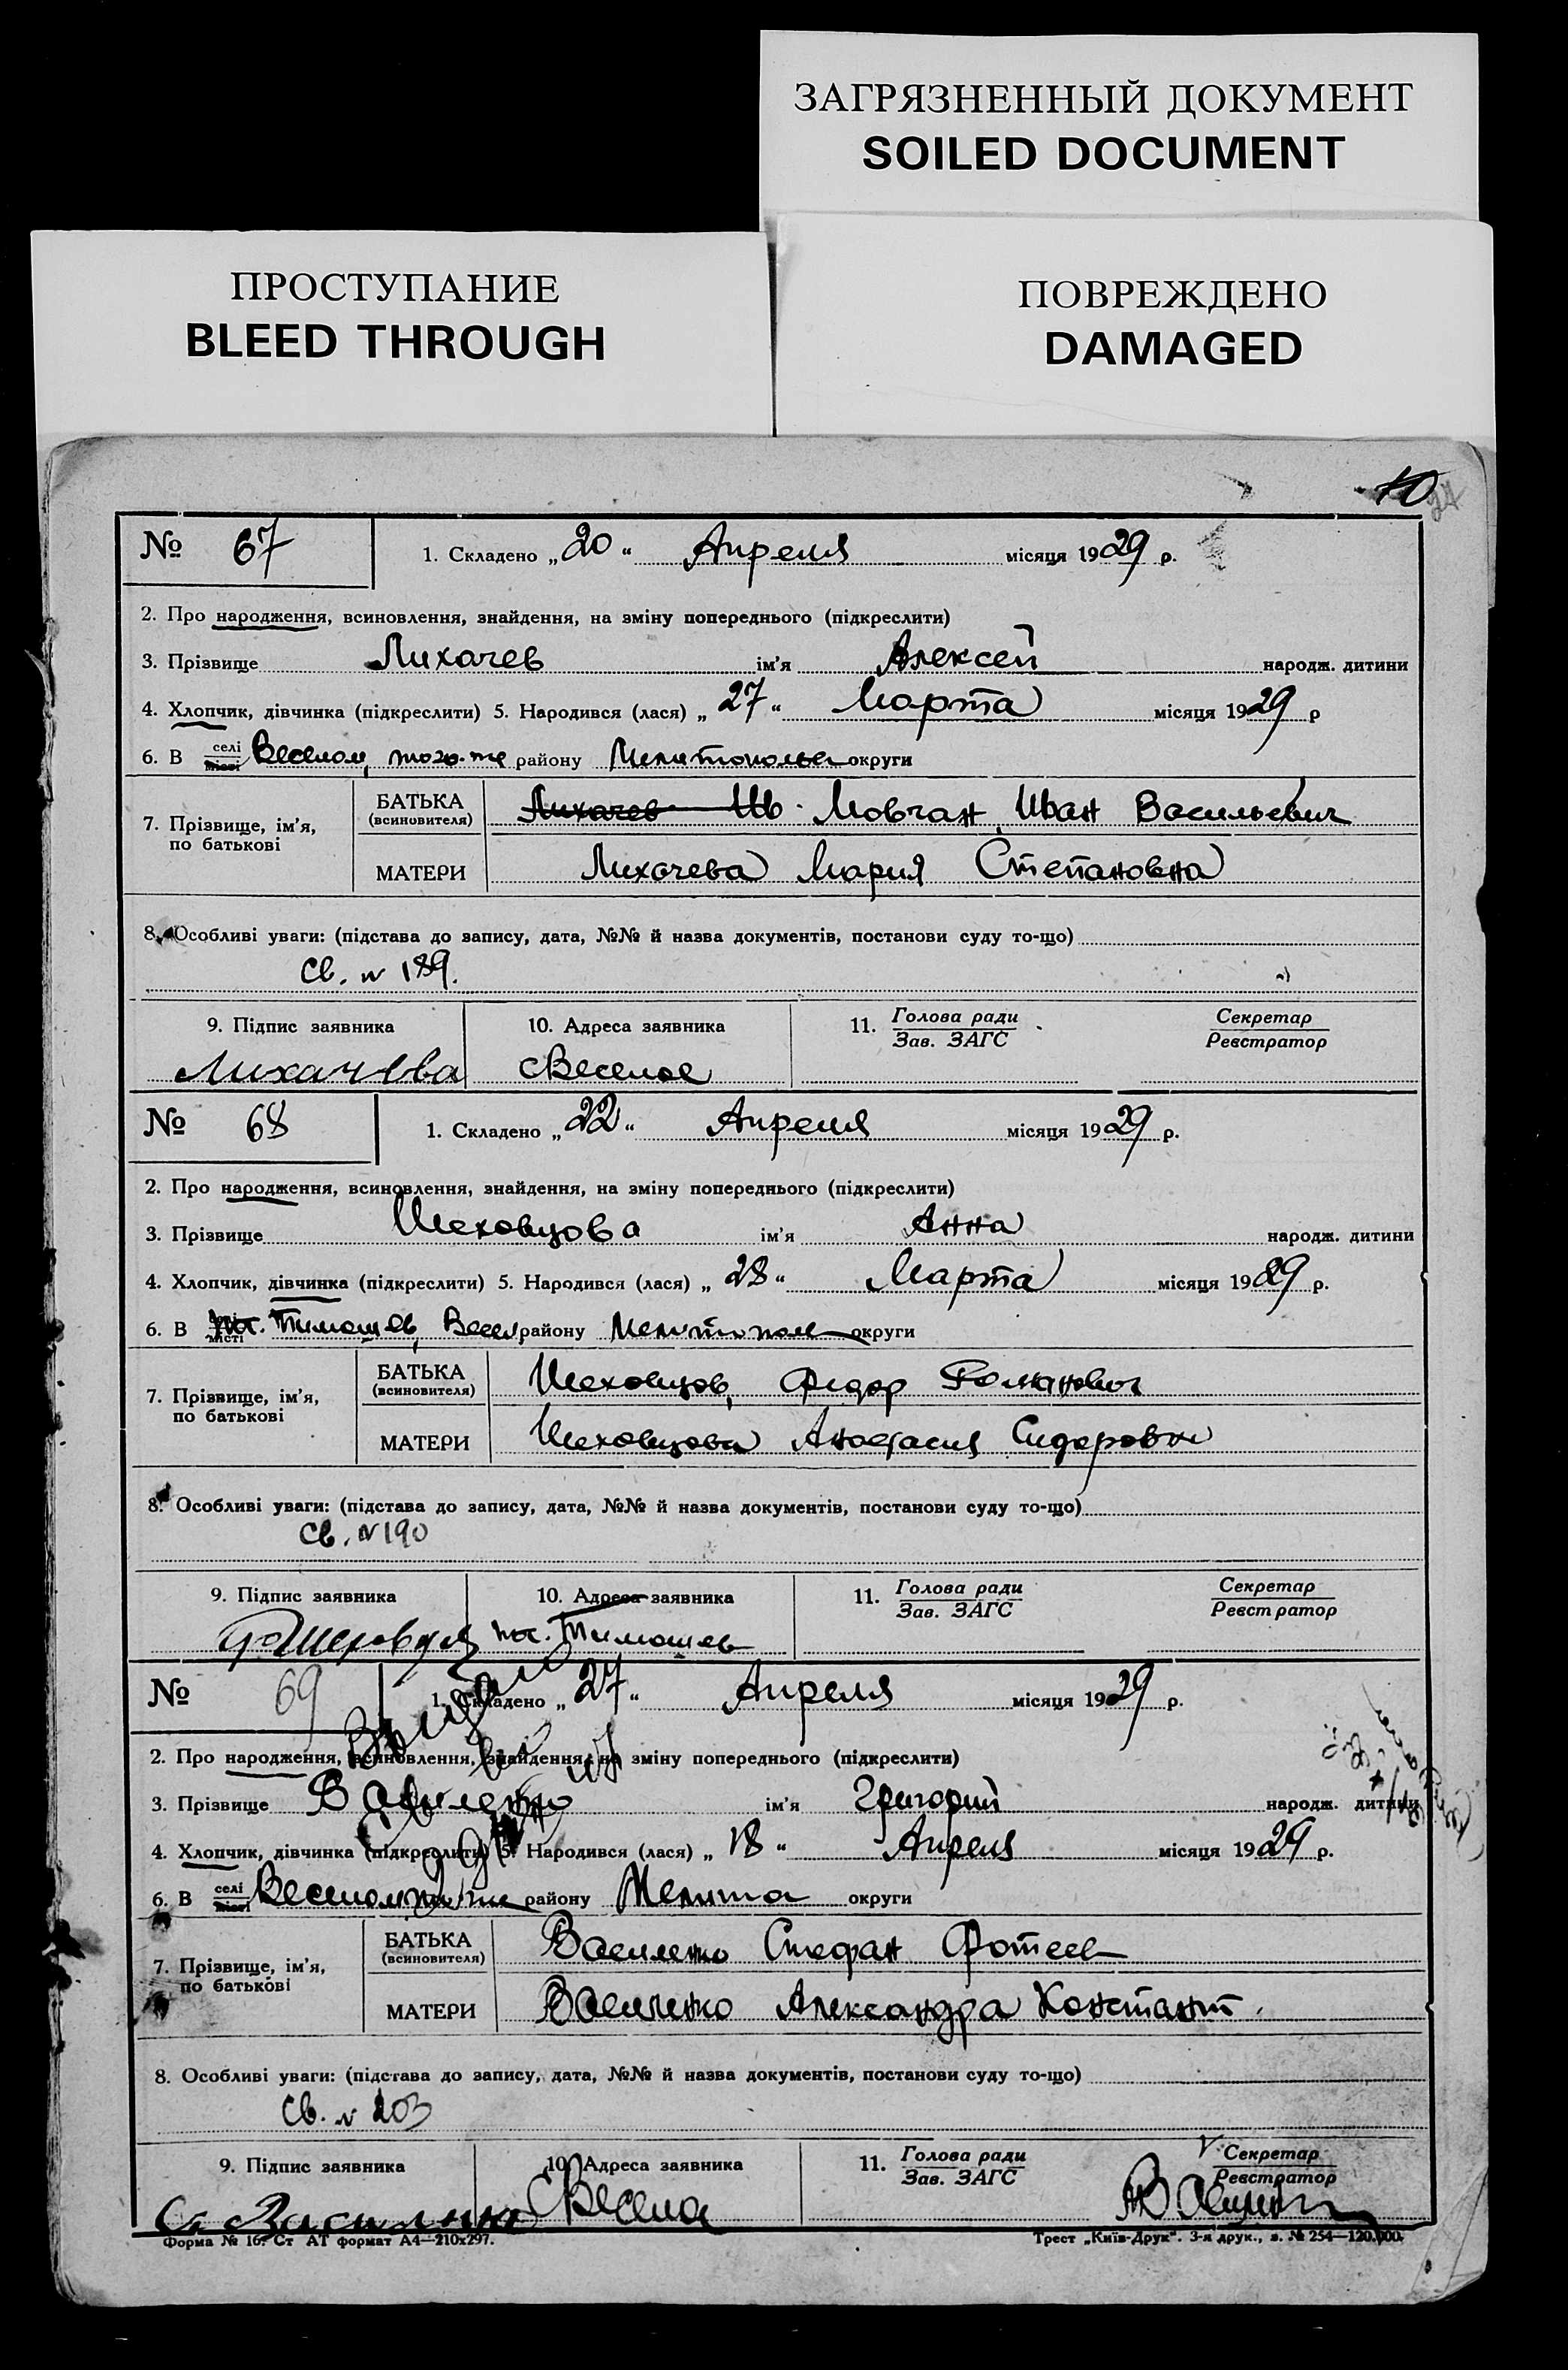 ЗАГРЯЗНЕННЫЙ ДОКУМЕНТ
SOILED DOCUMENT
ПРОСТУПАНИЕ
BLEED THROUGH
ПОВРЕЖДЕНО
DAMAGED
10
№ 67 1. Складено „20“ Апреля місяця 1929 р.
2. Про народження, всиновлення, знайдення, на зміну попереднього (підкреслити)
3. Прізвище Лихачев ім'я Алексей народж. дитини
4. Хлопчик, дівчинка (підкреслити) 5. Народився (лася) „27“ Марта місяця 1929 р
6. В селі місті Веселом, того-же району Мелитопольс округи
7. Прізвище, ім'я, по батькові БАТЬКА (всиновителя) Лихачев Ив. Мовчан, Иван Васильевич
МАТЕРИ Лихачева Мария Степановна
8. Особливі уваги: (підстава до запису, дата, №№ й назва документів, постанови суду то-що)
Св. № 189.
9. Підпис заявника 10. Адреса заявника 11. Голова ради Зав. ЗАГС Секретар Реєстратор
Лихачева с Веселое
№ 68 1. Складено „22“ Апреля місяця 1929 р.
2. Про народження, всиновлення, знайдення, на зміну попереднього (підкреслити)
3. Прізвище Шеховцова ім'я Анна народж. дитини
4. Хлопчик, дівчинка (підкреслити) 5. Народився (лася) „28“ Марта місяця 1929 р.
6. В місті Тимошев, Весел, району Мелитопол округи
7. Прізвище, ім'я, по батькові БАТЬКА (всиновителя) Шеховцов, Федор Романович
МАТЕРИ Шеховцова Анастасия Сидоровн
8. Особливі уваги: (підстава до запису, дата, №№ й назва документів, постанови суду то-що)
Св. № 190
9. Підпис заявника 10. Адреса заявника 11. Голова ради Зав. ЗАГС Секретар Реєстратор
Тимошев
№ 69 1. Складено „27“ Апреля місяця 1929 р.
2. Про народження, всиновлення, знайдення, на зміну попереднього (підкреслити)
3. Прізвище Василенко ім'я Григорий народж. дитини
4. Хлопчик, дівчинка (підкреслити) 5. Народився (лася) „18“ Апреля місяця 1929 р.
6. В селі місті Веселом району Мелито округи
7. Прізвище, ім'я, по батькові БАТЬКА (всиновителя) Василенко Стефан Фотеев
МАТЕРИ Василенко Александра Констант.
8. Особливі уваги: (підстава до запису, дата, №№ й назва документів, постанови суду то-що)
Св. № 203
9. Підпис заявника 10. Адреса заявника 11. Голова ради Зав. ЗАГС Секретар Реєстратор
С. Василенко
Форма № 16. Ст АТ формат А4—210х297. Трест „Київ-Друк". 3-я друк., з. № 254—120.000.